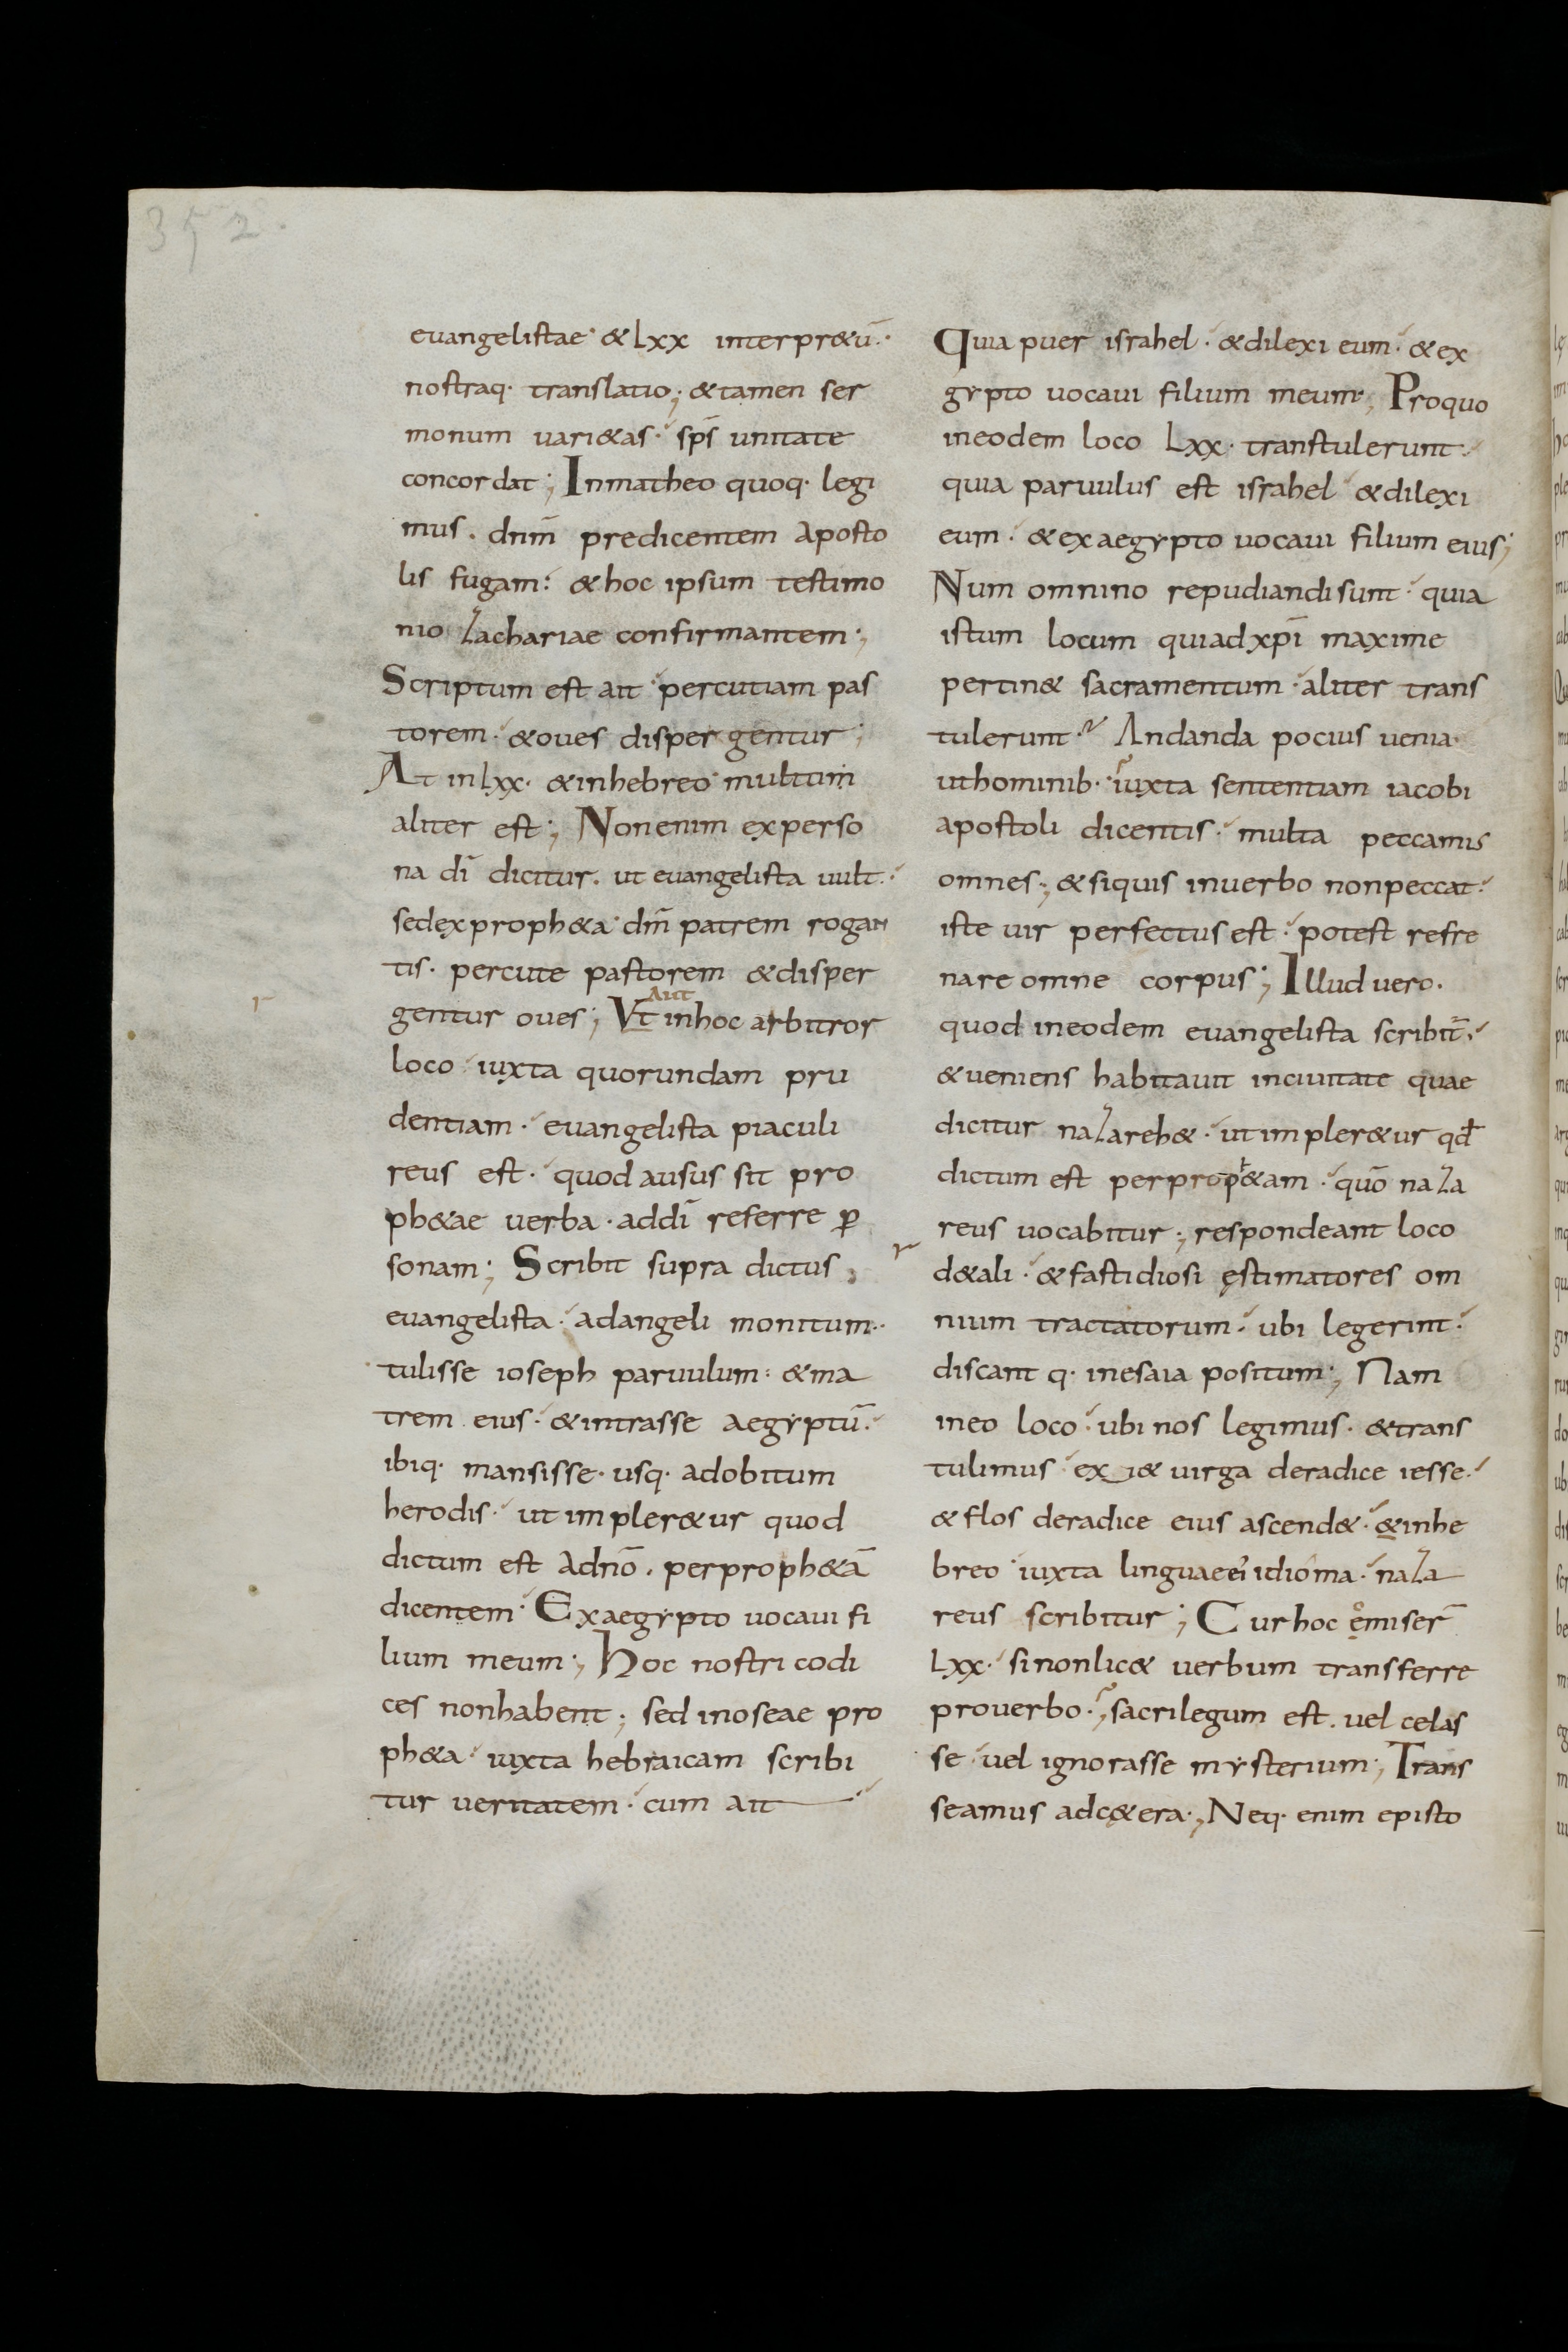 352.
euangelistae · & Lxx interpr&ū ·
nostraq· translatio ; & tamen ser
monum uari&as · sp̄s unitate
concordat ; In matheo quoq· legi
mus . dnm̄ predicentem aposto
lis fugam : & hoc ipsum testimo
nio Zachariae confirmantem ;
Scriptum est ait · percutiam pas
torem · & oues dispergentur ;
At in Lxx · & in hebreo · multum
aliter est ; Non enim ex perso
na dī dicitur . ut euangelista uult ·
sed ex proph&a · dm̄ patrem rogan
tis · percute pastorem & disper
Aut
gentur oues ; Vt in hoc arbitror
loco iuxta quorundam pru
dentiam · euangelista piaculi
reus est · quod ausus sit pro
ph&ae uerba · ad dī referre ꝑ
sonam ; Scribit supra dictus
euangelista · ad angeli monitum ·
tulisse ioseph paruulum : & ma
trem eius · & intrasse aegyptū ·
ibiq· mansisse · usq· ad obitum
herodis · ut impler&ur quod
dictum est a dnō . per proph&ā
dicentem · Ex aegypto uocaui fi
lium meum ; Hoc nostri codi
ces non habent ; sed in oseae pro
ph&a · iuxta hebraicam scribi
tur ueritatem · cum ait
Quia puer israhel · & dilexi eum · & ex
gypto uocaui filium meum ; Pro quo
in eodem loco Lxx · transtulerunt ·
quia paruulus est israhel & dilexi
eum · & ex aegypto uocaui filium eius ;
Num omnino repudiandi sunt · quia
istum locum qui ad xp̄i maxime
pertin& sacramentum · aliter trans
tulerunt · An danda pocius uenia ·
ut hominib· · iuxta sententiam iacobi
apostoli dicentis · multa peccamus
omnes ; & si quis in uerbo non peccat ·
iste uir perfectus est · potest refre
nare omne corpus ; Illud uero ·
quod in eodem euangelista scribit̄ ·
& ueniens habitauit in ciuitate quae
dicitur naZareh& · ut impler&ur qđ
dictum est per prop̔&am · quō naZa
reus uocabitur ; respondeant loco
d&ali · & fastidiosi ęstimatores om
nium tractatorum · ubi legerint ·
discant q· in esaia positum ; Nam
in eo loco · ubi nos legimus · & trans
tulimus · exi& uirga de radice iesse ·
& flos de radice eius ascend& · & in he
breo · iuxta linguae ei idioma · naZa
reus scribitur ; Cur hoc ęmiser̄
Lxx · si non lic& uerbum transferre
pro uerbo · ; sacrilegum est . uel celas
se · uel ignorasse mysterium ; Trans
seamus ad c&era ; Neq· enim episto